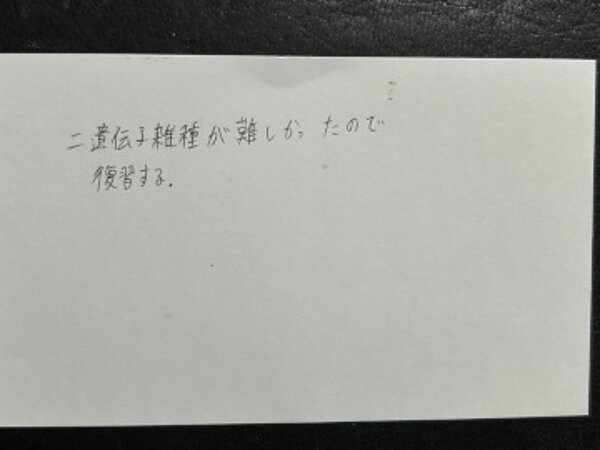 二遺伝子雑種が難しかったので
復習する.